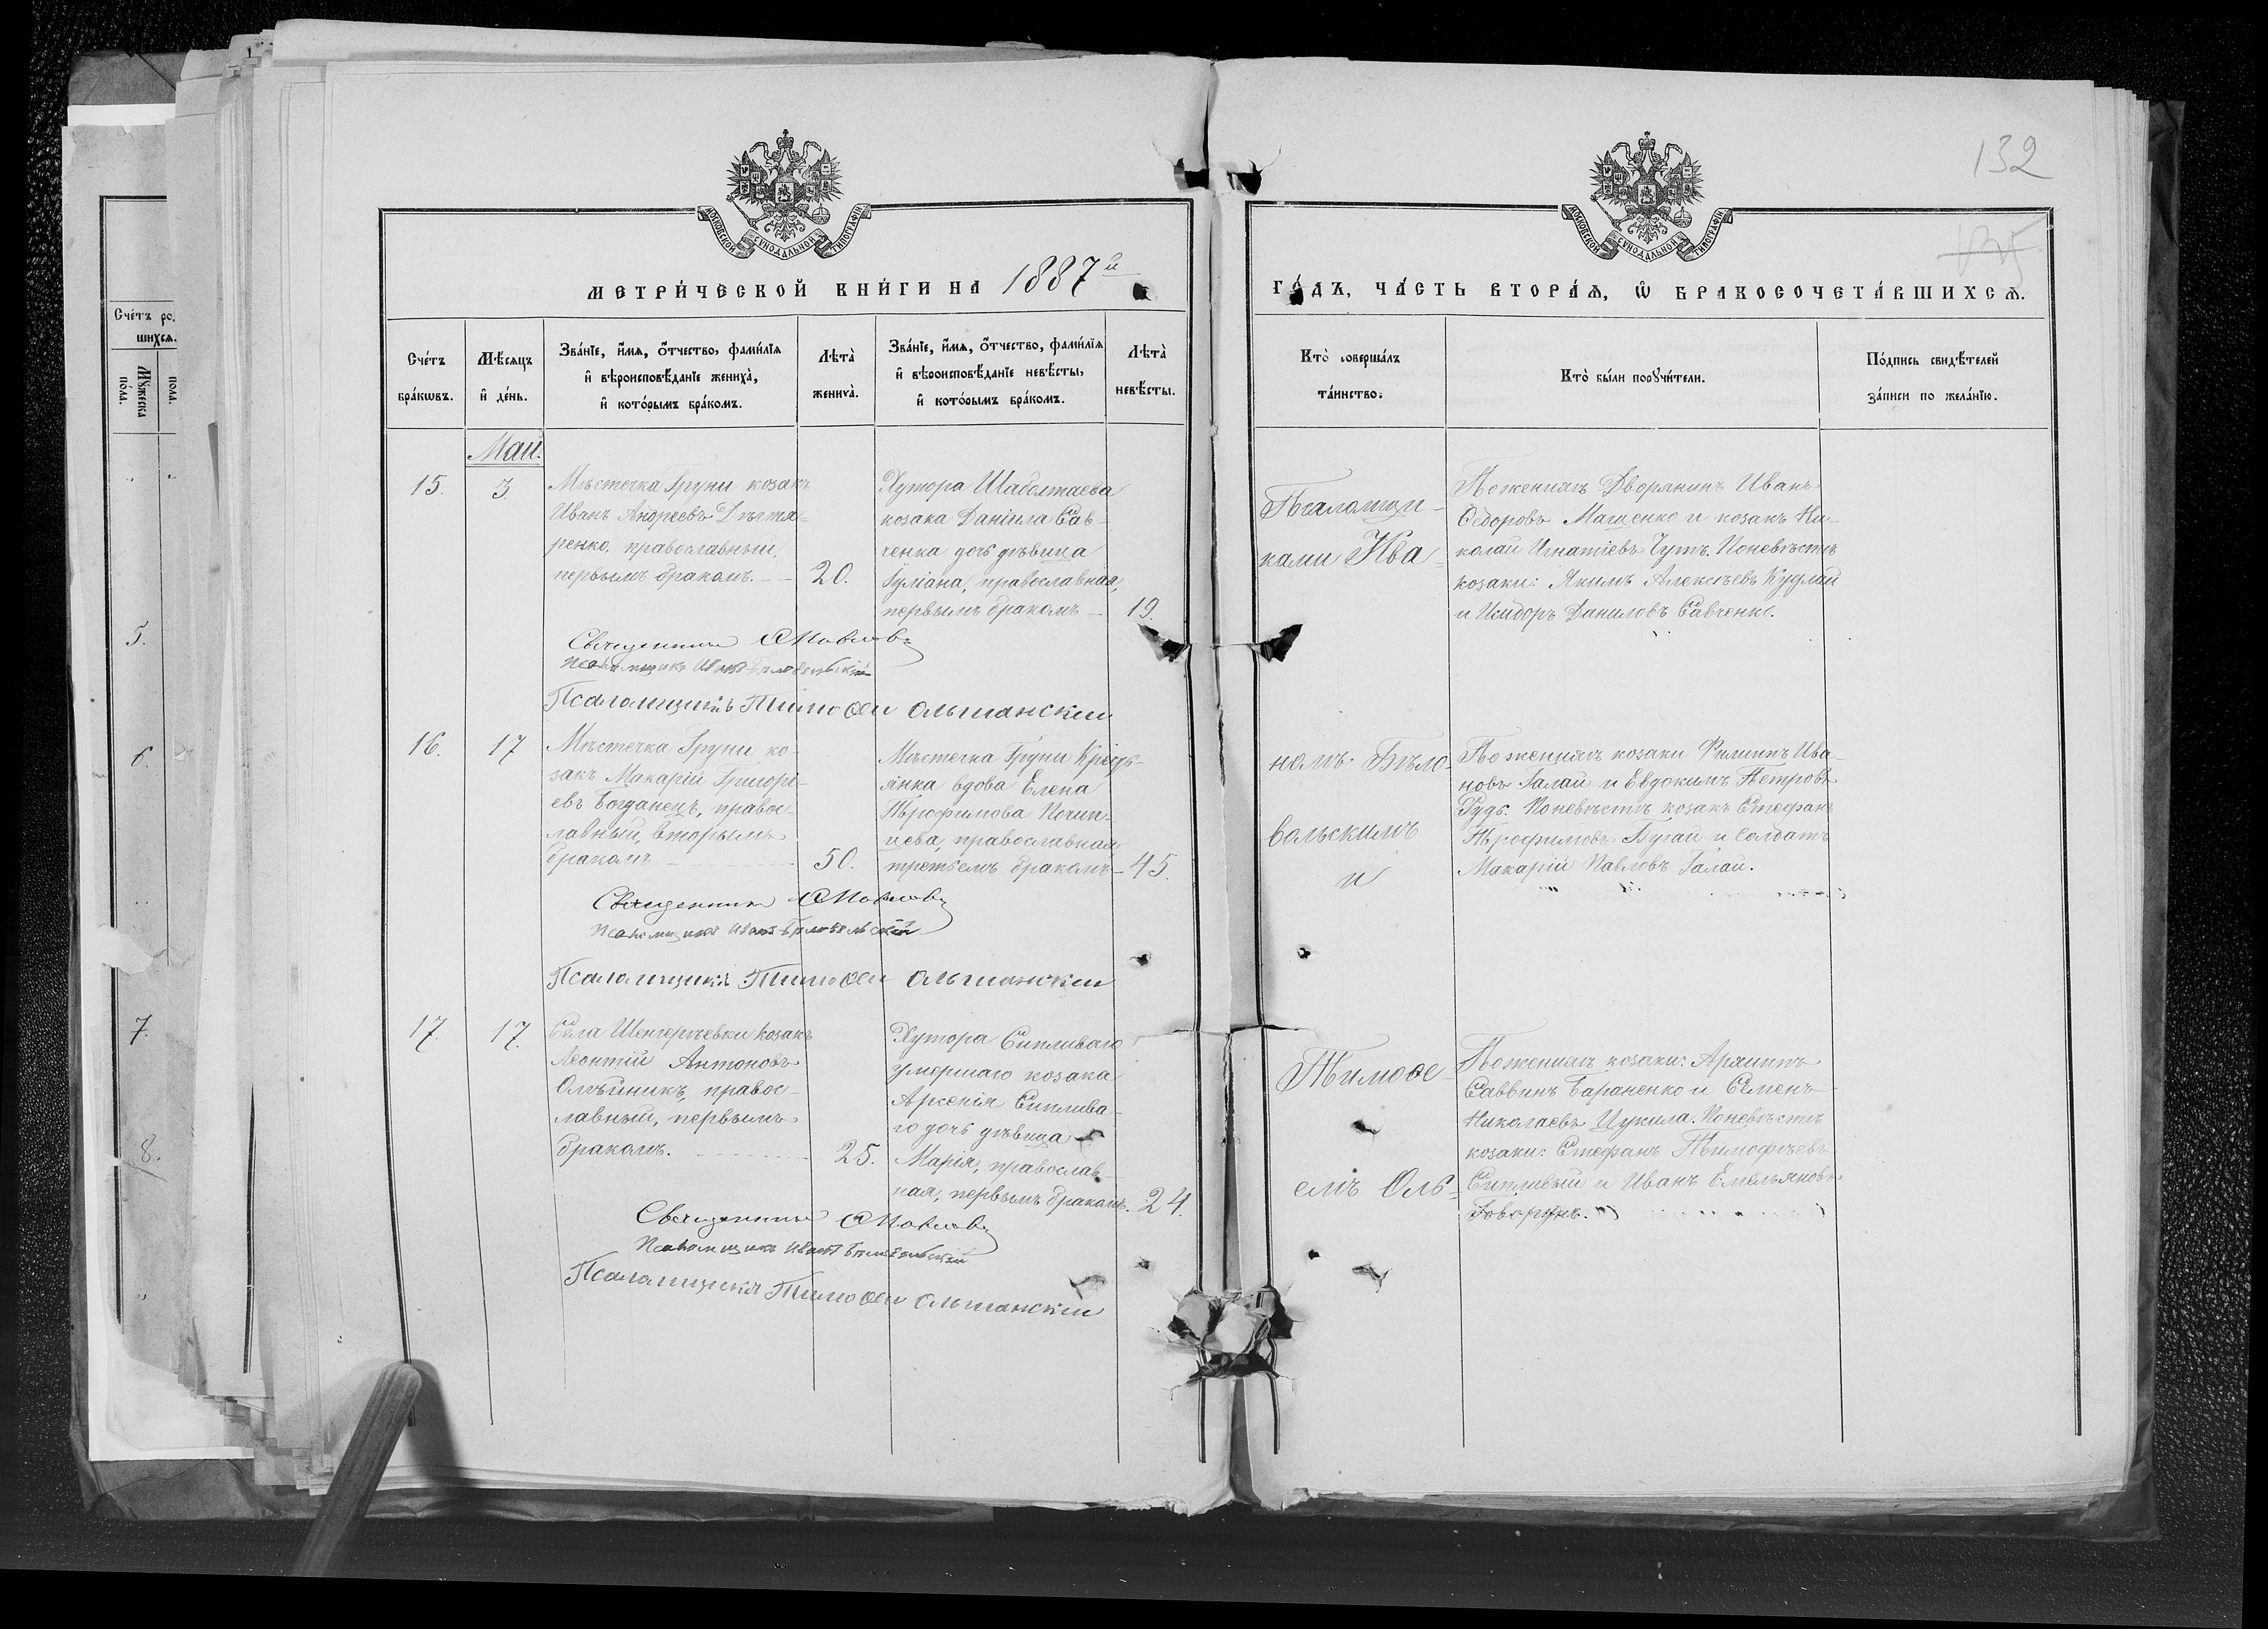 132
МОСКОВСКОЙ СѴНОДАЛЬНОЙ ТИПОГРАФІИ
МОСКОВСКОЙ СѴНОДАЛЬНОЙ ТИПОГРАФІИ
МЕТРИ́ЧЕСКОЙ КНИ́ГИ НА 1887й
ГО́ДЪ, ЧА́СТЬ ВТОРА́Ѧ, Ѡ҆ БРАКОСОЧЕТА́ВШИХСѦ.
Сче́тъ ро
шихсѧ.
Мꙋ́жеска
по́ла.
пола.
5.
6.
7.
8.
Сче́тъ
бра́кѡвъ.
Мѣ́сѧцъ
и҆ де́нь.
Зва́нїе, и҆́мѧ, ѻ҆́тчество, фами́лїѧ
и҆ вѣроисповѣ́данїе жениха̀,
и҆ кото́рымъ бра́комъ.
Лѣта̀
жениха̀.
Зва́нїе, и҆́мѧ, ѻ҆́тчество, фами́лїѧ
и҆ вѣроисповѣ́данїе невѣ́сты,
и҆ кото́рымъ бра́комъ.
Лѣта̀
невѣ́сты.
Кто̀ совершáлъ
та́инство.
Кто̀ бы́ли порꙋчи́тели.
По́дпись свидѣ́телей
за́писи по жела́нїю.
Май.
15.
3.
Мѣстечка Груни козакъ
Иванъ Андреевъ Дѣгтя-
ренко, православный,
первымъ бракомъ.
20.
Хутора Шаболтаева
козака Даніила Сав-
ченка дочь дѣвица
Іуліана, православная,
первымъ бракомъ
19.
Псаломщи-
ками Ива-
По женихѣ Дворянинъ Иванъ
Ѳедоровъ Мащенко и козакъ Ни-
колай Игнатіевъ Чутъ. По невѣстѣ
козаки: Якимъ Алексѣевъ Кудлай
и Исидоръ Даниловъ Савченко.
Священникъ
Псаломщикъ Иванъ Бѣловольскій
Псаломщикъ Тимоѳей Ольшанскій
16.
17
Мѣстечка Груни ко-
закъ Макарій Григорі-
евъ Богданецъ, правос-
лавный, вторымъ
бракомъ
50.
Мѣстечка Груни Крѣсть-
янка вдова Елена
Трофимова Почип-
цева, православная
третьемъ бракомъ
45.
номъ Бѣло-
вольскимъ
и
По женихѣ козаки Филиппъ Ива-
новъ Галай и Евдокимъ Петровъ
Гудь. По невѣстѣ козакъ Стефанъ
Трофимовъ Бугай и Солдатъ
Макарій Павловъ Галай.
Священникъ
Псаломщикъ Иванъ Бѣловольскій
Псаломщикъ Тимоѳей Ольшанскій
17.
17.
Села Шенгерѣевки козакъ
Леонтій Антоновъ
Олѣйникъ, правос-
лавный, первымъ
бракомъ.
25.
Хутора Сипливаго
умершаго козака
Арсенія Сиплива-
го дочь дѣвица
Марія, православ-
ная, первымъ бракомъ.
24.
Тимоѳе-
емъ Оль-
По женихѣ козаки: Архиппъ
Саввинъ Бараненко и Семенъ
Николаевъ Цукила. По невѣстѣ
козаки: Стефанъ Тимофѣевъ
Сипливый и Иванъ Емельяновъ
Говорунъ.
Священникъ
Псаломщикъ Иванъ Бѣловольскій
Псаломщикъ Тимоѳей Ольшанскій